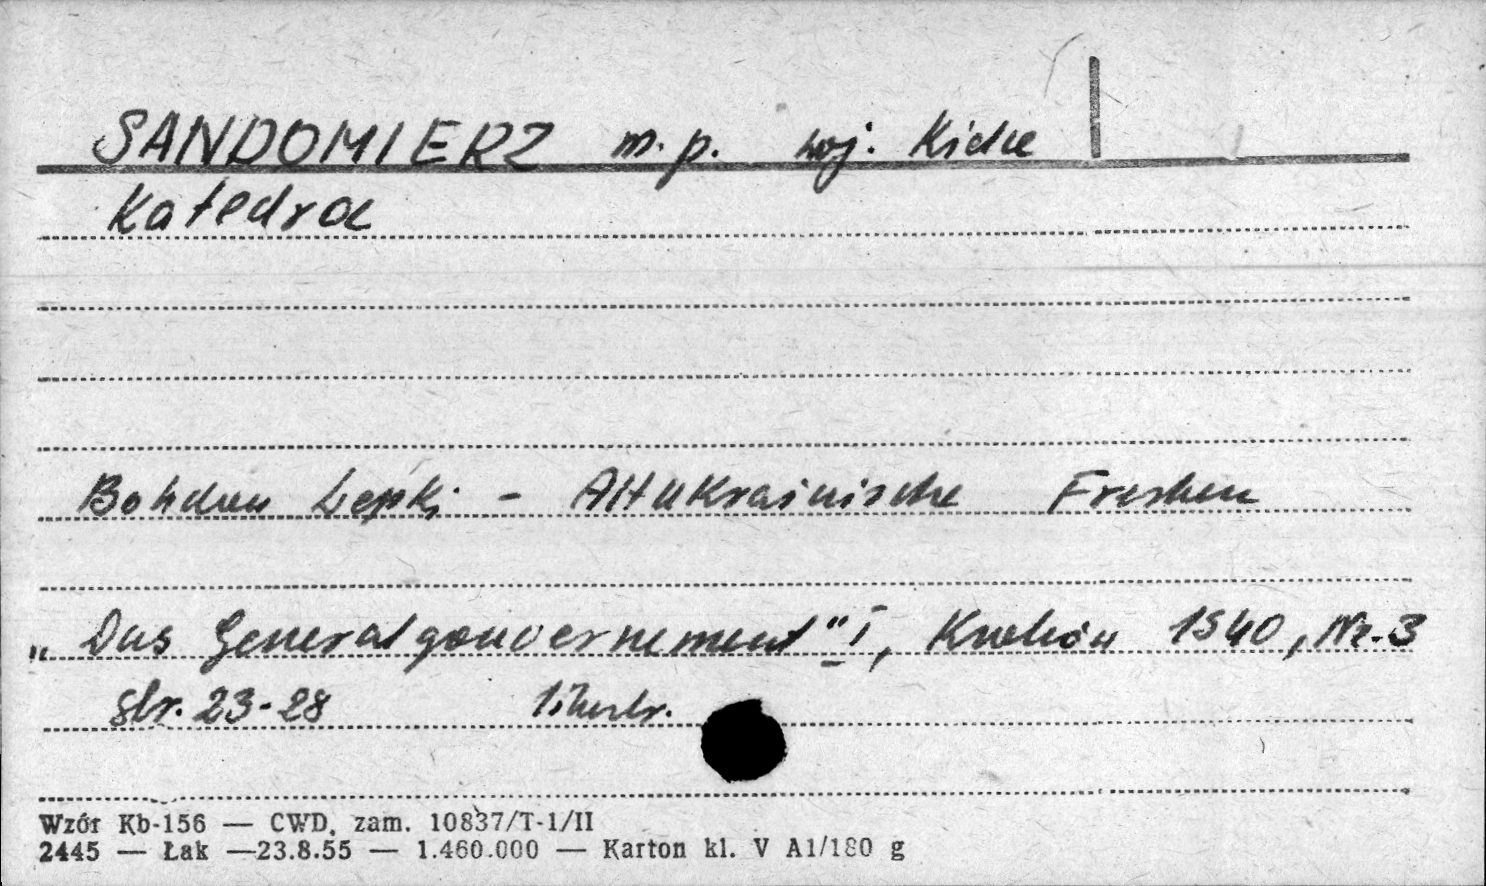 SANDOMIERZ m.p. woj. Kielce
Katedra
Bohdan Łepkj - Altukrainische Fresken
„Das Generalgouvernement" I, Kraków 1940, Nr. 3
str. 23-28 1 ilustr.
Wzór Kb-156 — CWD, zam. 10837/T-1/II
2445 — Łak —23.8.55 — 1.460.000 — Karton kl. V A1/180 g